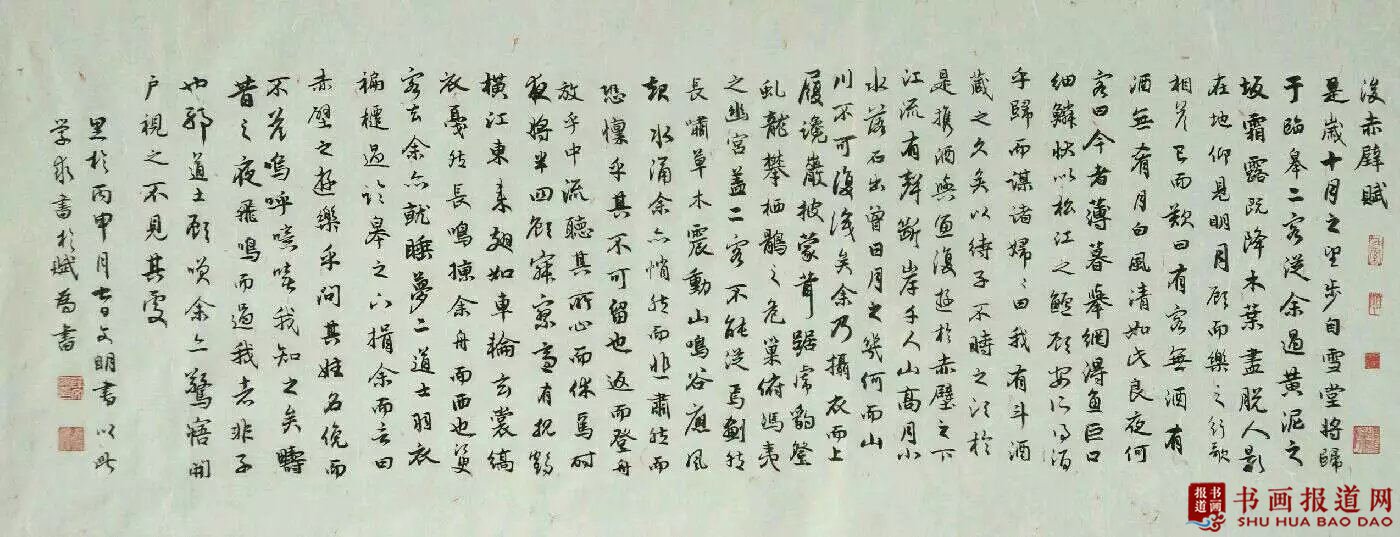 後赤壁賦
是歲十月之望步自雪堂將歸
于臨皋二客從余過黃泥之
坂霜露既降木葉盡脫人影
在地仰見明月顧而樂之行歌
相答已而歎曰有客無酒有
酒無肴月白風清如此良夜何
客曰今者薄暮舉網得魚巨口
細鱗狀似松江之鱸顧安所得酒
乎歸而謀諸婦〻曰我有斗酒
藏之久矣以待子不時之須於
是攜酒與魚復遊於赤壁之下
江流有聲斷岸千尺山高月小
水落石出曾日月之幾何而山
川不可復識矣余乃攝衣而上
履巉巖披蒙茸踞虎豹登
虬龍攀栖鶻之危巢俯馮夷
之幽宮蓋二客不能從焉劃然
長嘯草木震動山鳴谷應風
起水涌余亦悄然而悲肅然而
恐懍乎其不可留也返而登舟
放乎中流聽其所止而休焉時
夜將半四顧寂寥適有孤鶴
橫江東來翅如車輪玄裳縞
衣戛然長鳴掠余舟而西也須
客去余亦就睡夢二道士羽衣
蹁躚過臨皋之下揖余而言曰
赤壁之遊樂乎問其姓名俛而
不答嗚呼噫嘻我知之矣疇
昔之夜飛鳴而過我者非子
也耶道士顧笑余亦驚寤開
戶視之不見其處
於丙申月七日文明書以此
書於
报道 书画
书画报道网
SHU HUA BAO DAO